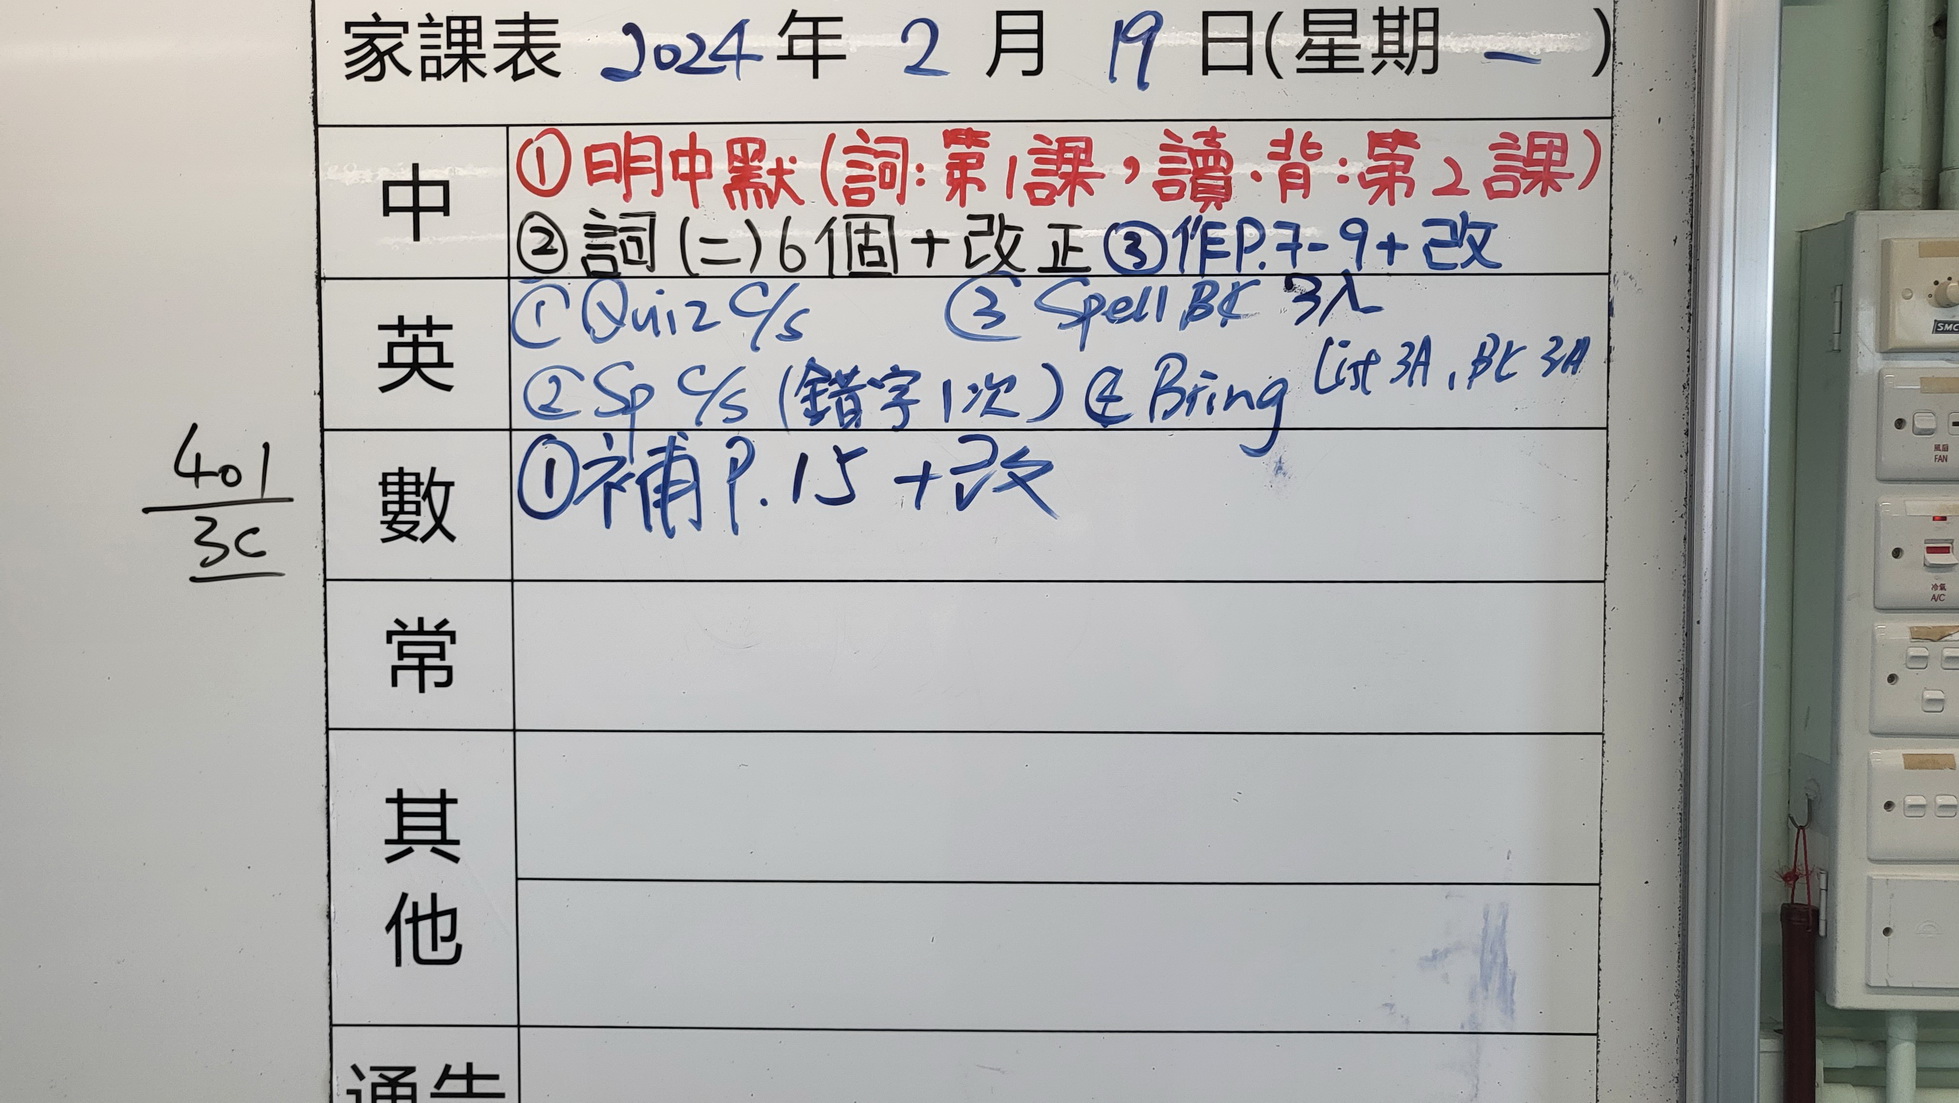 家課表 2024 年 2 月 19 日(星期 一 )
中
①明中默(詞:第1課,讀.背:第2課)
②詞(二)6個+改正③作P.7-9+改
英
①Quiz C/S ③ Spell BK 3入
②Sp C/S (錯字1次) ④ Bring List 3A, BK 3A
數
①補P.15 +改
401
3C
常
其他
通告
SMC
風扇
FAN
冷氣
A/C